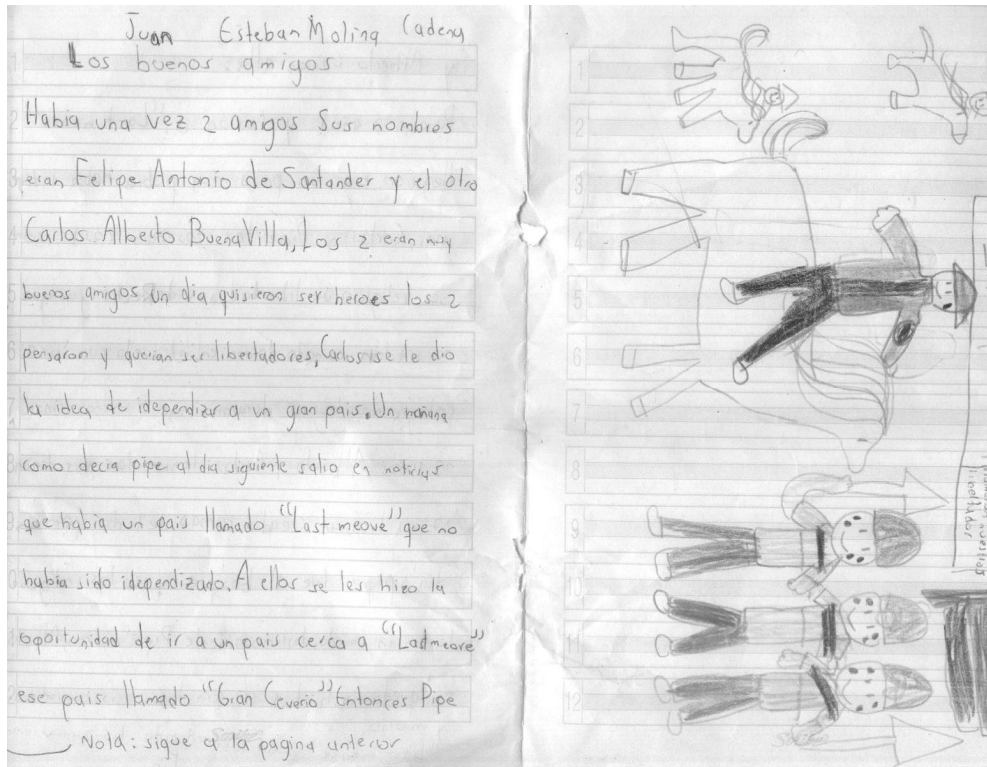 Juan Esteban Molina Cadena
Los buenos amigos
Habia una vez 2 amigos Sus nombres
eran Felipe Antonio de Santander y el otro
Carlos Alberto BuenaVilla, Los 2 eran muy
buenos amigos un dia quisieron ser heroes los 2
pensaron y querian ser libertadores, Carlos se le dio
la idea de idependizar a un gran pais. Un mañana
como decia pipe al dia siguiente salio en noticias
que habia un pais llamado "Last meove" que no
habia sido idependizado. A ellos se les hizo la
oportunidad de ir a un pais cerca a "Ladmeove"
ese pais llamado "Gran Ceverio" Entonces Pipe
Nota: sigue a la pagina anterior
1
2
3
4
5
6
7
8
9
10
11
12
libertador